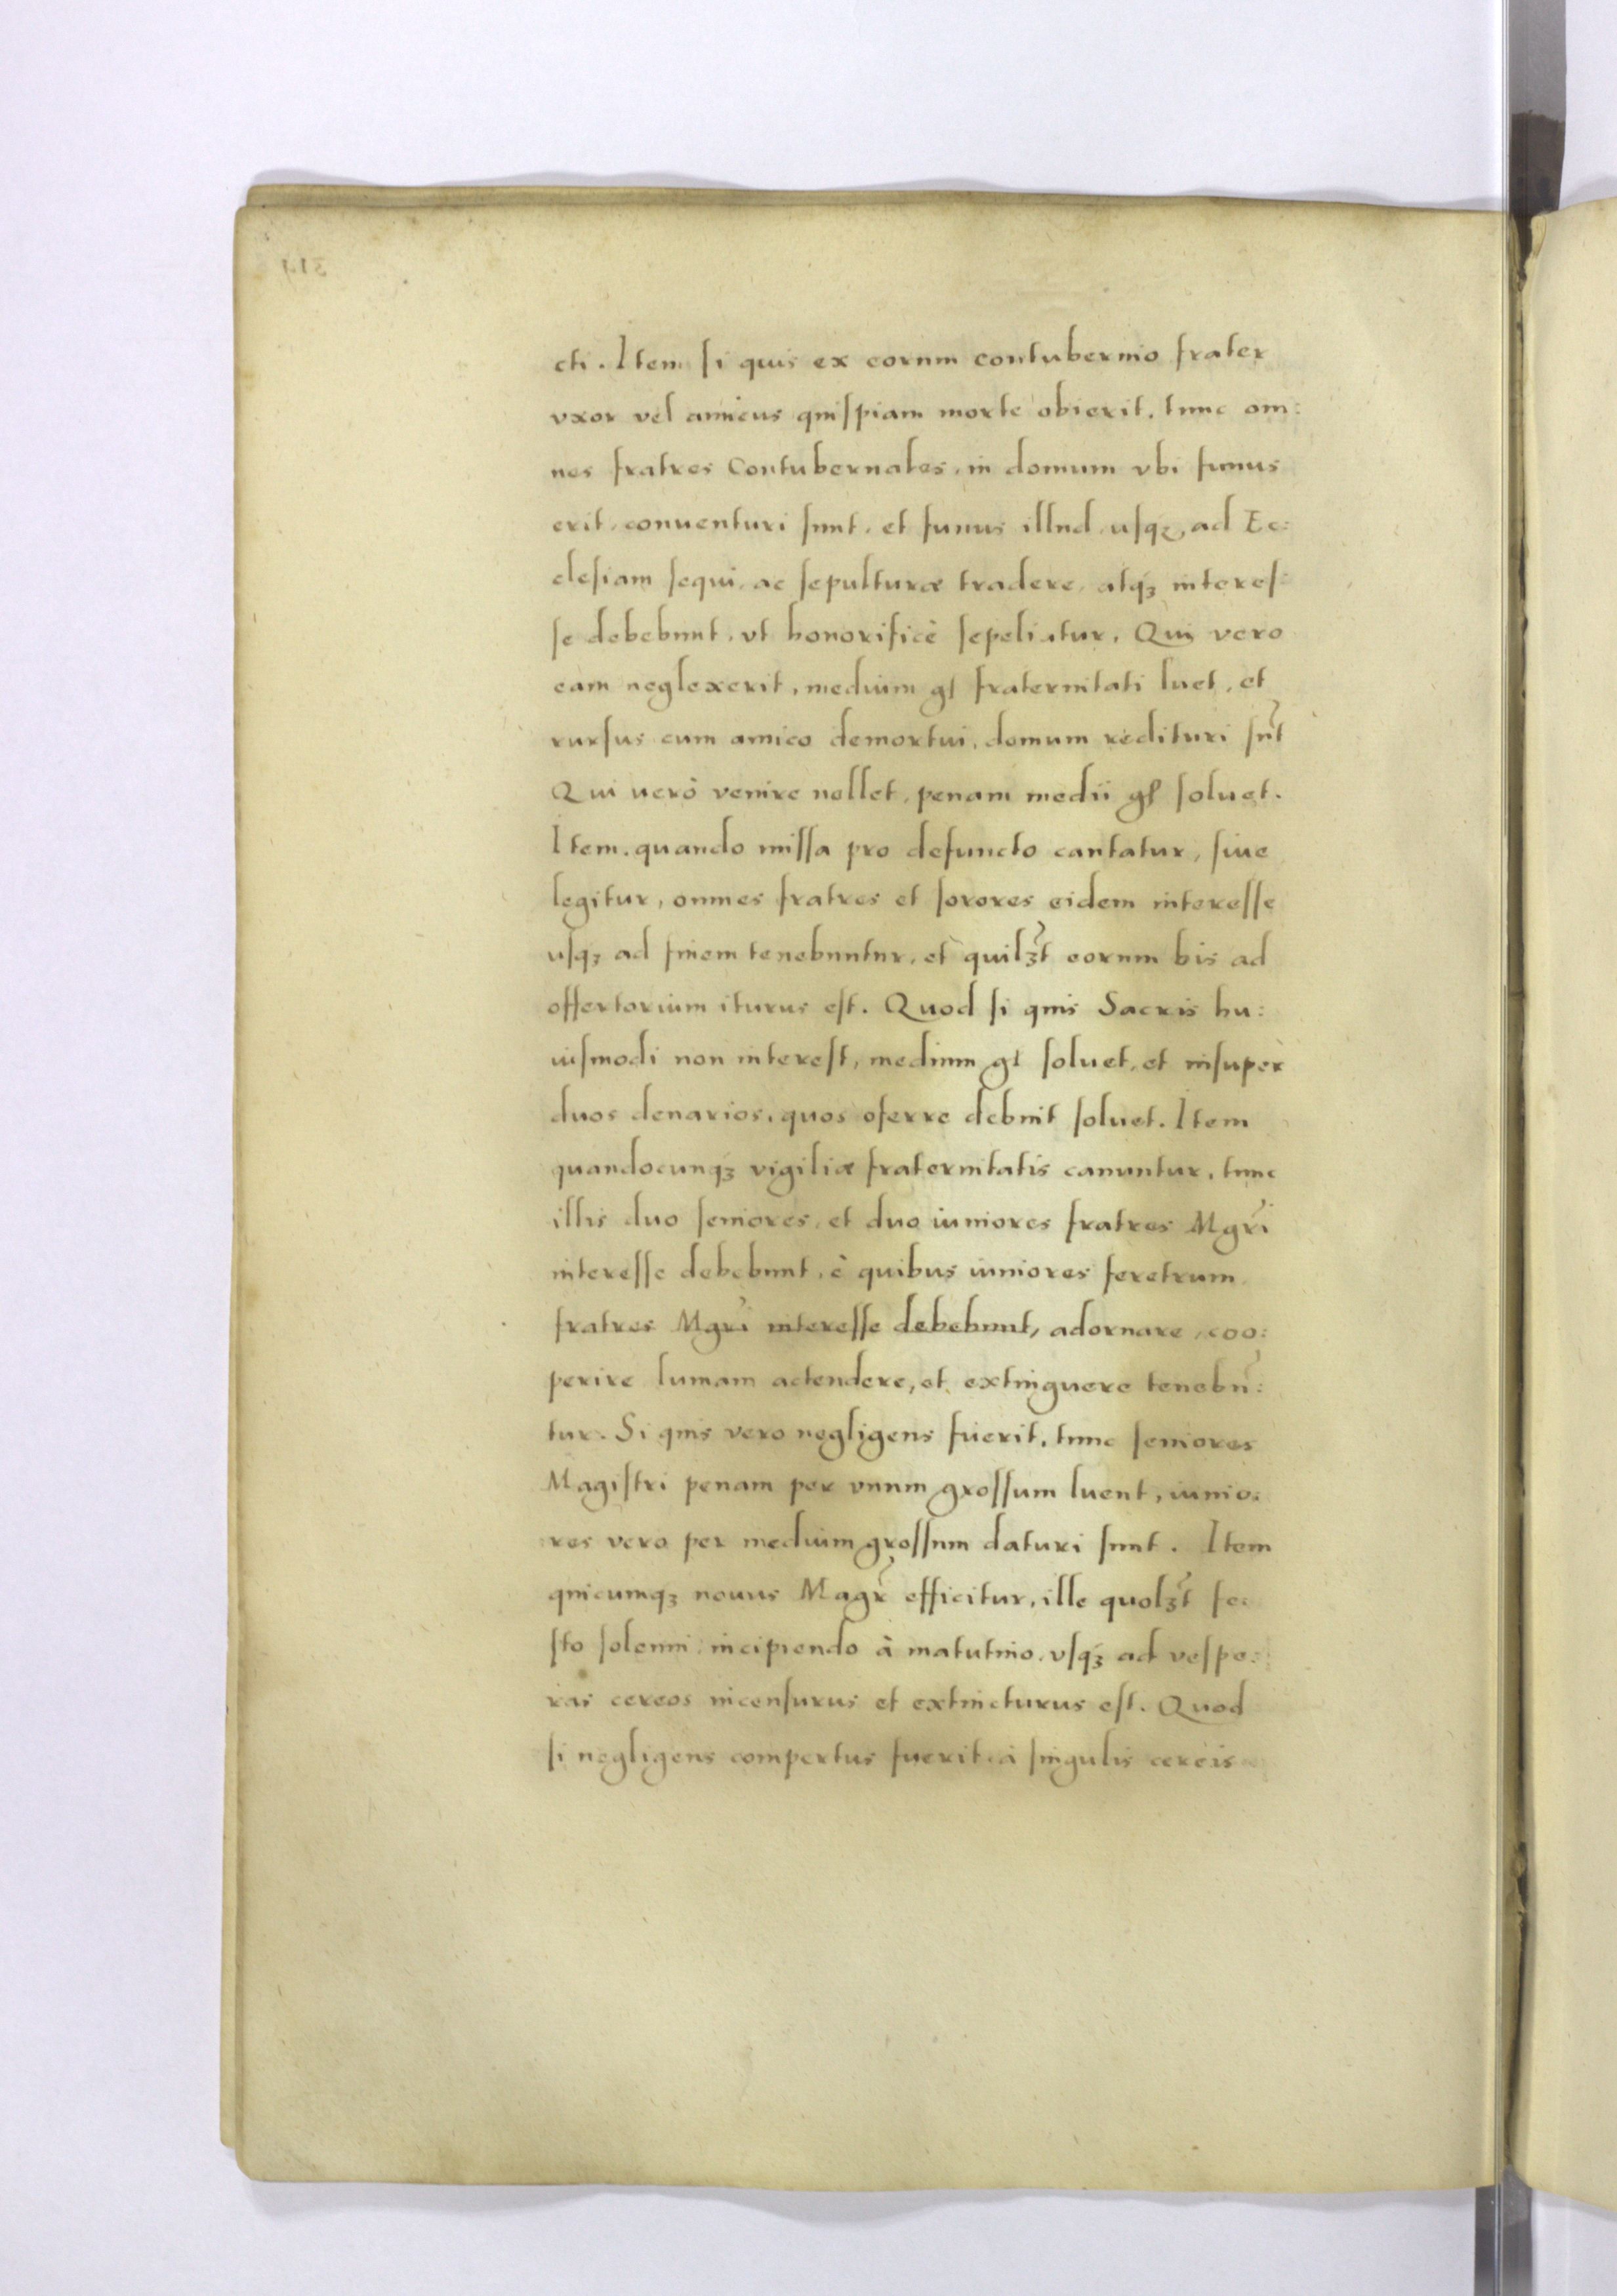 cti. Item si quis ex eorum contubernio frater
vxor vel amicus quispiam morte obierit, tunc om:
nes fratres Contubernales, in domum vbi funus
erit, conuenturi sunt, et funus illud, usqz, ad Ec:
clesiam sequi, ac sepulturæ tradere, atqz interes:
se debebunt, vt honorificè sepeliatur. Qui vero
eam neglexerit, medium gl fraternitati luet, et
rursus cum amico demortui, domum redituri sũt
Qui uerò venire nollet, penam medii gl soluet.
Item. quando missa pro defuncto cantatur, siue
legitur, omnes fratres et sorores eidem interesse
usqz ad finem tenebuntur, et quilzt̃ eorum bis ad
offertorium iturus est. Quod si quis Sacris hu:
iusmodi non interest, medium gl soluet, et insuper
duos denarios, quos oferre debuit soluet. Item
quandocunqz vigiliæ fraternitatis canuntur, tunc
illis duo seniores, et duo iuniores fratres Mgr̃i
interesse debebunt, è quibus iuniores feretrum
fratres Mgr̃i interesse debebunt, adornare, coo:
perire lumam actendere, et extinguere tenebũ:
tur. Si quis vero negligens fuerit, tunc seniores
Magistri penam per vnum grossum luent, iunio:
res vero per medium grossum daturi sunt. Item
quicumqz nouus Magr̃ efficitur, ille quolzt̃ fe:
sto solenni, incipiendo à matutino, vsqz ad vespe:
ras cereos incensurus et extincturus est. Quod
si negligens compertus fuerit à singulis cereis